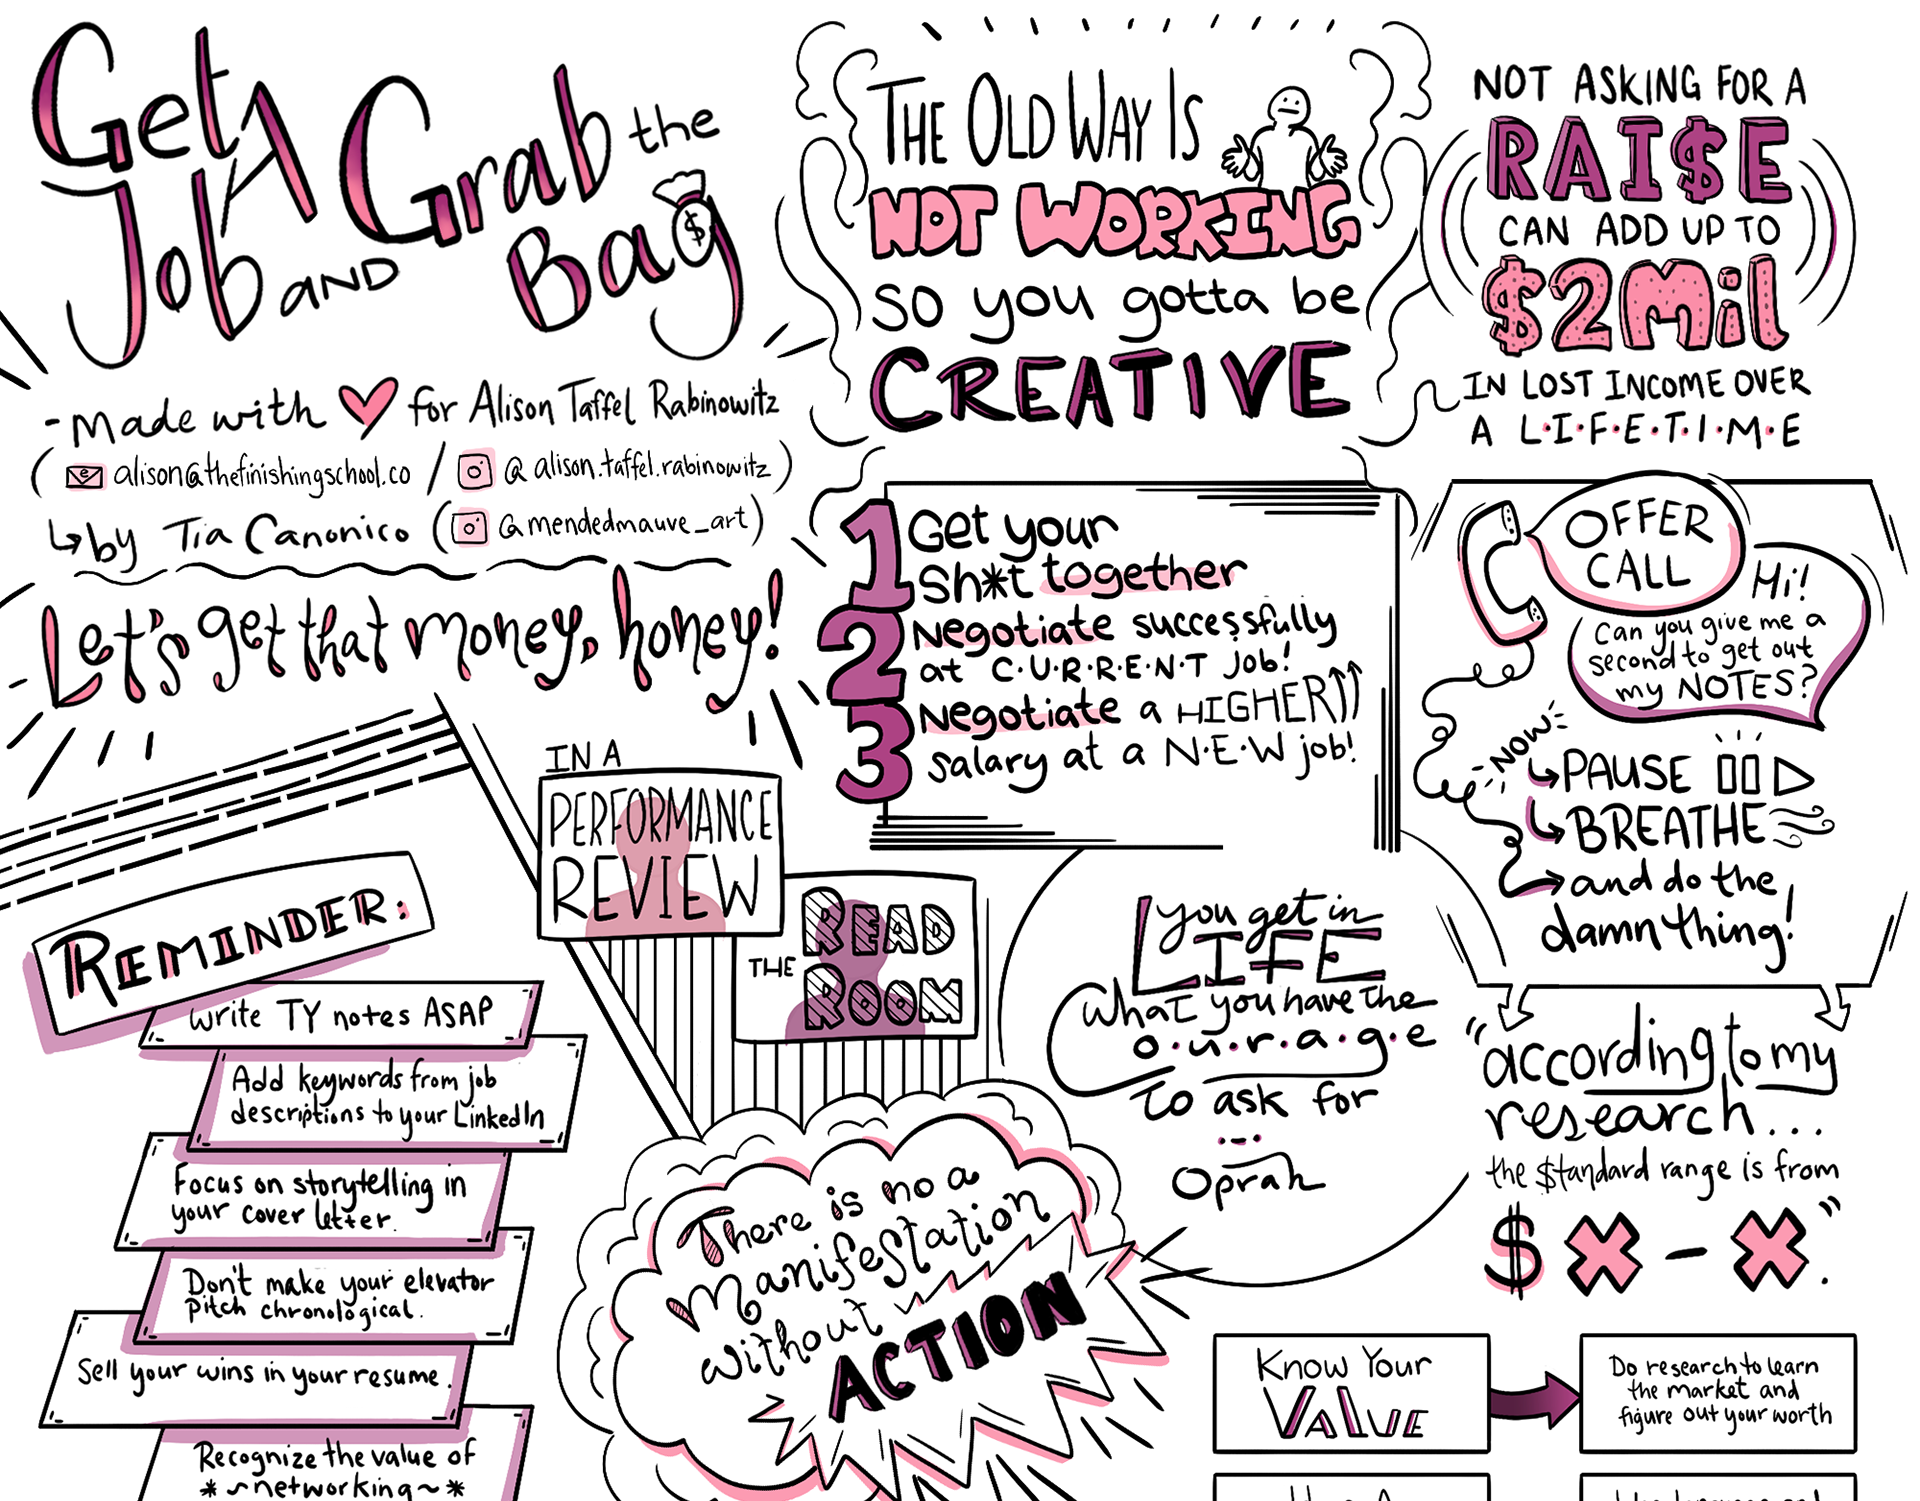 Get A
Job AND Grab the
Bag
- Made with for Alison Taffel Rabinowitz
( alison@thefinishingschool.co / @alison.taffel.rabinowitz )
by Tia Canonico ( @mendedmauve_art )
Let's get that money, honey!
THE OLD WAY IS
NOT WORKING
so you gotta be
CREATIVE
NOT ASKING FOR A
RAI$E
CAN ADD UP TO
$2Mil
IN LOST INCOME OVER
A L·I·F·E·T·I·M·E
1 Get your
Sh*t together
2 Negotiate successfully
at C·U·R·R·E·N·T job!
3 Negotiate a HIGHER
salary at a N·E·W job!
OFFER
CALL
Hi!
Can you give me a
second to get out
my NOTES?
NOW
PAUSE
BREATHE
and do the
damn thing!
"according to my
research...
the $tandard range is from
$ X - X."
IN A
PERFORMANCE
REVIEW
READ
THE ROOM
you get in
LIFE
What you have the
c·o·u·r·a·g·e
to ask for
...
Oprah
REMINDER:
Write TY notes ASAP
Add keywords from job
descriptions to your LinkedIn
Focus on storytelling in
your cover letter.
Don't make your elevator
pitch chronological.
Sell your wins in your resume.
Recognize the value of
*~networking~*
There is no a
Manifestation
without
ACTION
KNOW YOUR
VALUE
Do research to learn
the market and
figure out your worth